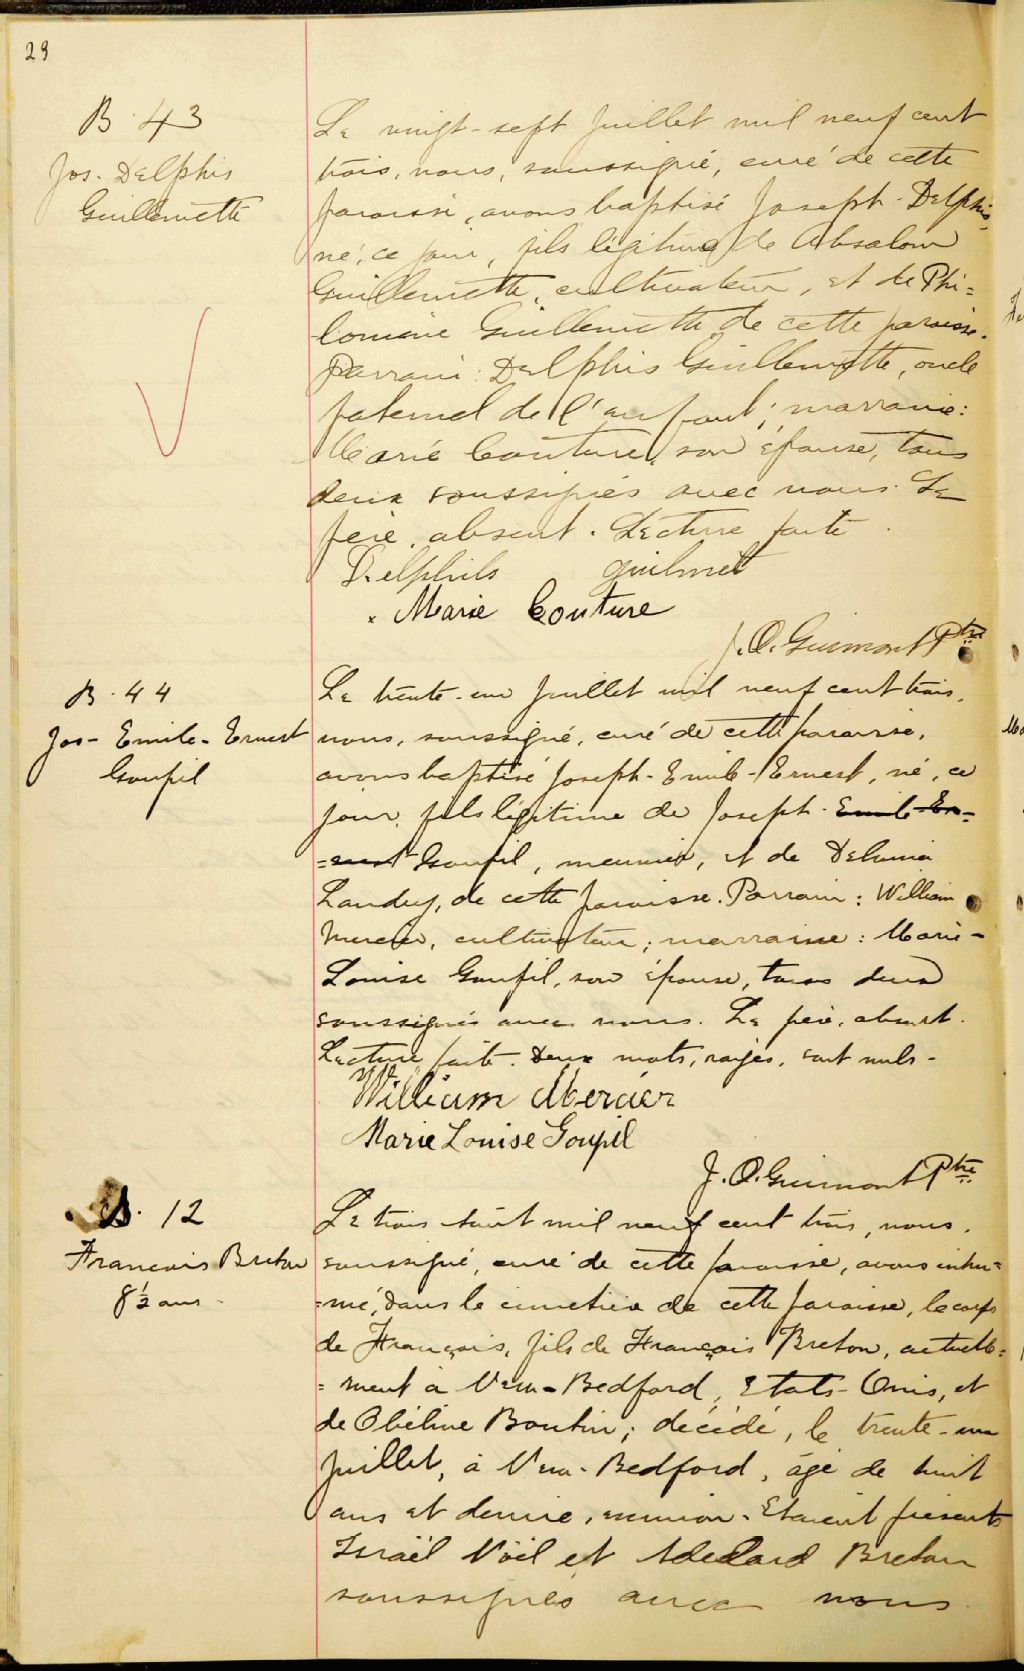 29
B. 43
Jos. Delphis
Guillemette
Le vingt-sept Juillet mil neuf cent
trois, nous, soussigné, curé de cette
paroisse, avons baptisé Joseph-Delphis,
né, ce jour, fils légitime de Absalom
Guillemette, cultivateur, et de Phi=
lomène Guillemette de cette paroisse.
Parrain: Delphis Guillemette, oncle
paternel de l'enfant; marraine:
Marie Couture, son épouse, tous
deux soussignés avec nous. Le
père, absent. Lecture faite.
Delphils guilmet
Marie Couture
J.O. Guimont Ptre
B. 44
Jos-Emile-Ernest
Goupil
Le trente-un Juillet mil neuf cent trois,
nous, soussigné, curé de cette paroisse,
avons baptisé Joseph-Emile-Ernest, né, ce
jour, fils légitime de Joseph-Emile-Er=
=nest Goupil, meunier, et de
Landry, de cette paroisse. Parrain: William
Mercier, cultivateur; marraine: Marie-
Louise Goupil, son épouse, tous deux
soussignés avec nous. Le père, absent.
Lecture faite. Deux mots, rayés, sont nuls-
William Mercier
Marie Louise Goupil
J.O. Guimont Ptre
S. 12
Francois Breton
8½ ans
Le trois Août mil neuf cent trois, nous,
soussigné, curé de cette paroisse, avons inhu=
=mé, dans le cimetière de cette paroisse, le corps
de François, fils de François Breton, actuelle=
=ment à New-Bedford, Etats-Unis, et
de Obéline Boutin; décédé, le trente-un
Juillet, à New-Bedford, âgé de huit
ans et demie, environ. Etaient présents
Israël Nöel et Adelard Breton
soussignés avec nous